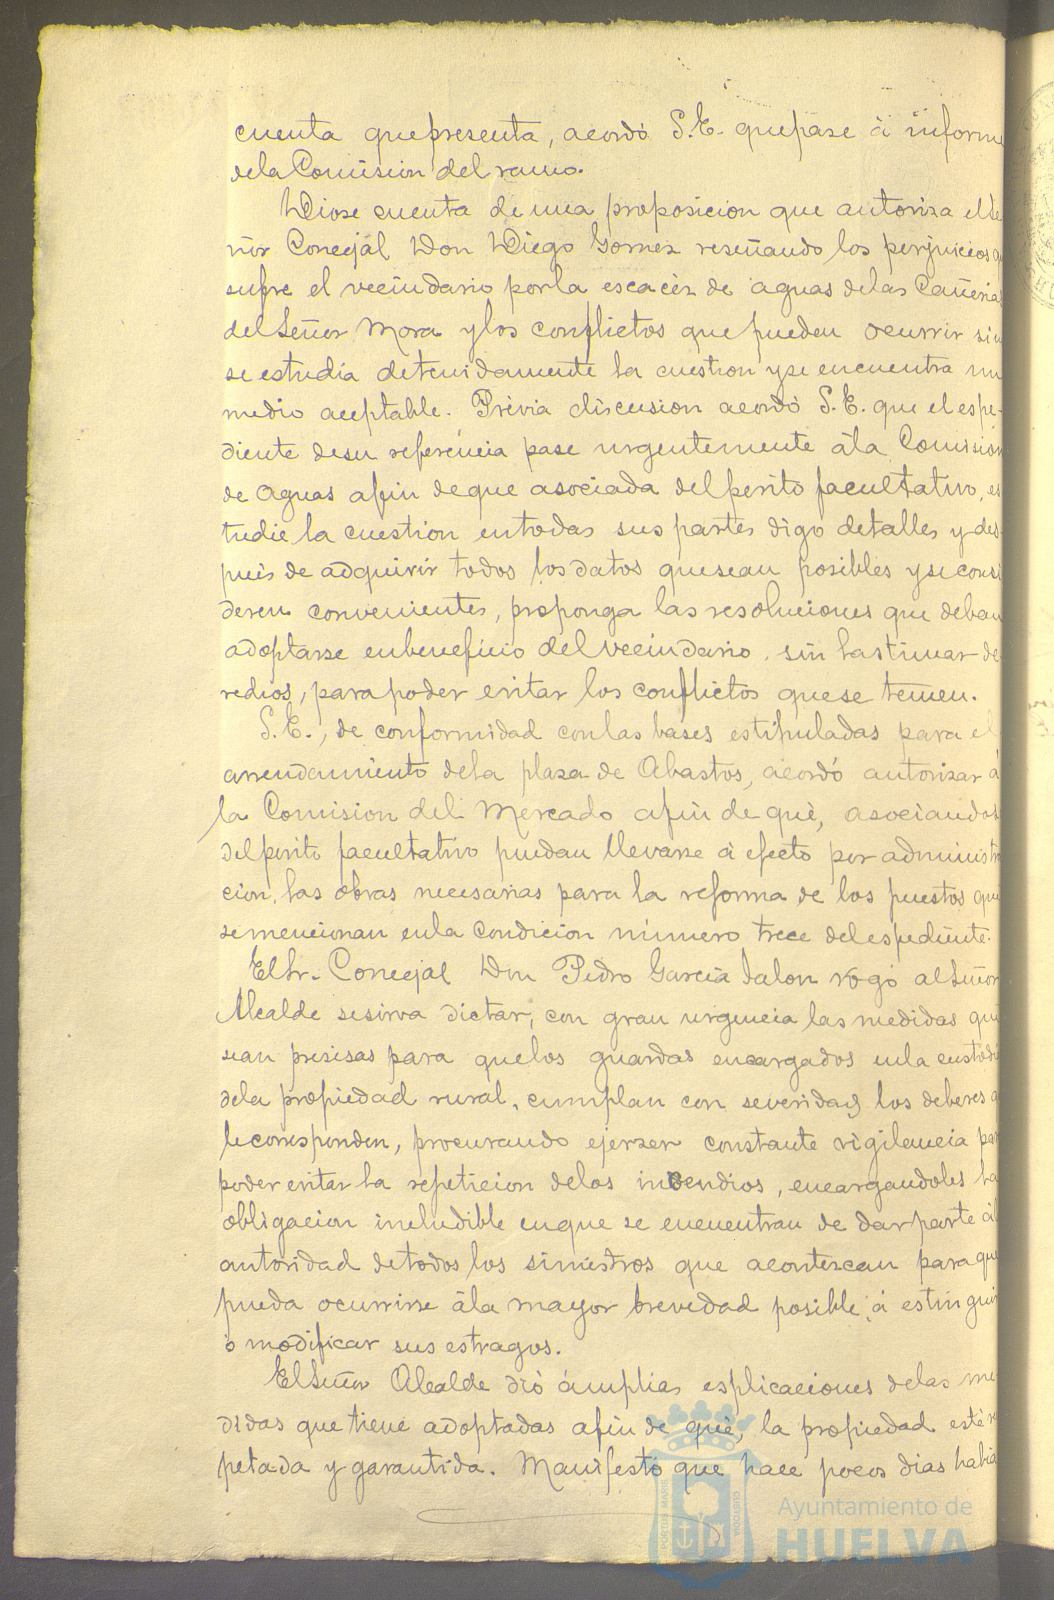 cuenta que presenta, acordó S.E. que pase á informe
de la Comision del ramo.
Diose cuenta de una proposicion que autoriza el Se
ñor Concejal Don Diego Gomez reseñando los perjuicios q
sufre el vecindario por la escacéz de aguas de las Cañerias
del Señor Mora y los conflictos que pueden ocurrir sin
se estudia detenidamente la cuestion y se encuentra un
medio aceptable. Prévia discusion acordó S.E. que el espe-
diente de su referencia pase urgentemente á la Comision
de Aguas afin de que asociada del perito facultativo, es
tudie la cuestion en todas sus partes digo detalles y des-
pues de adquirir todos los datos que sean posibles y se consi
deren convenientes, proponga las resoluciones que deban
adoptarse en beneficio del vecindario, sin lastimar de
redios, para poder evitar los conflictos que se temen.
S.E., de conformidad con las bases estipuladas para el
arrendamiento de la plaza de Abastos, acordó autorizar á
la Comision del Mercado afin de que, asociandos
del perito facultativo puedan llevarse á efecto por administra
cion, las obras necesarias para la reforma de los puestos que
se mencionan en la condicion número trece del espediente.
El Sr. Concejal Don Pedro Garcia Jalon rogó al Señor
Alcalde se sirva dictar, con gran urgencia las medidas que
sean presisas para que los guardas encargados en la custodi
de la propiedad rural, cumplan con severidad los deberes q
le corresponden, procurando ejerzer constante vigilancia par
poder evitar la repeticion de los incendios, encargandoles la
obligacion ineludible en que se encuentran de dar parte á l
autoridad de todos los sinistros que acontezcan para que
pueda ocurrirse á la mayor brevedad posible, á estinguir
ó modificar sus estragos.
El Señor Alcalde dió ámplias esplicaciones de las me
didas que tiene adoptadas afin de que, la propiedad esté re
petada y garantida. Manifestó que hace pocos dias habia
PORTUS MARIS
CUSTODIA
Ayuntamiento de
HUELVA